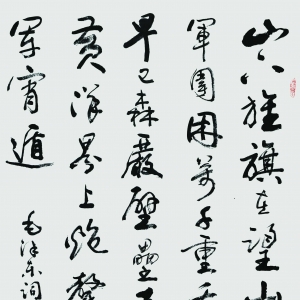 山下旌旗在望山
軍圍困萬千重
早已森嚴壁壘
黃洋界上炮聲
軍宵遁
毛澤東詞